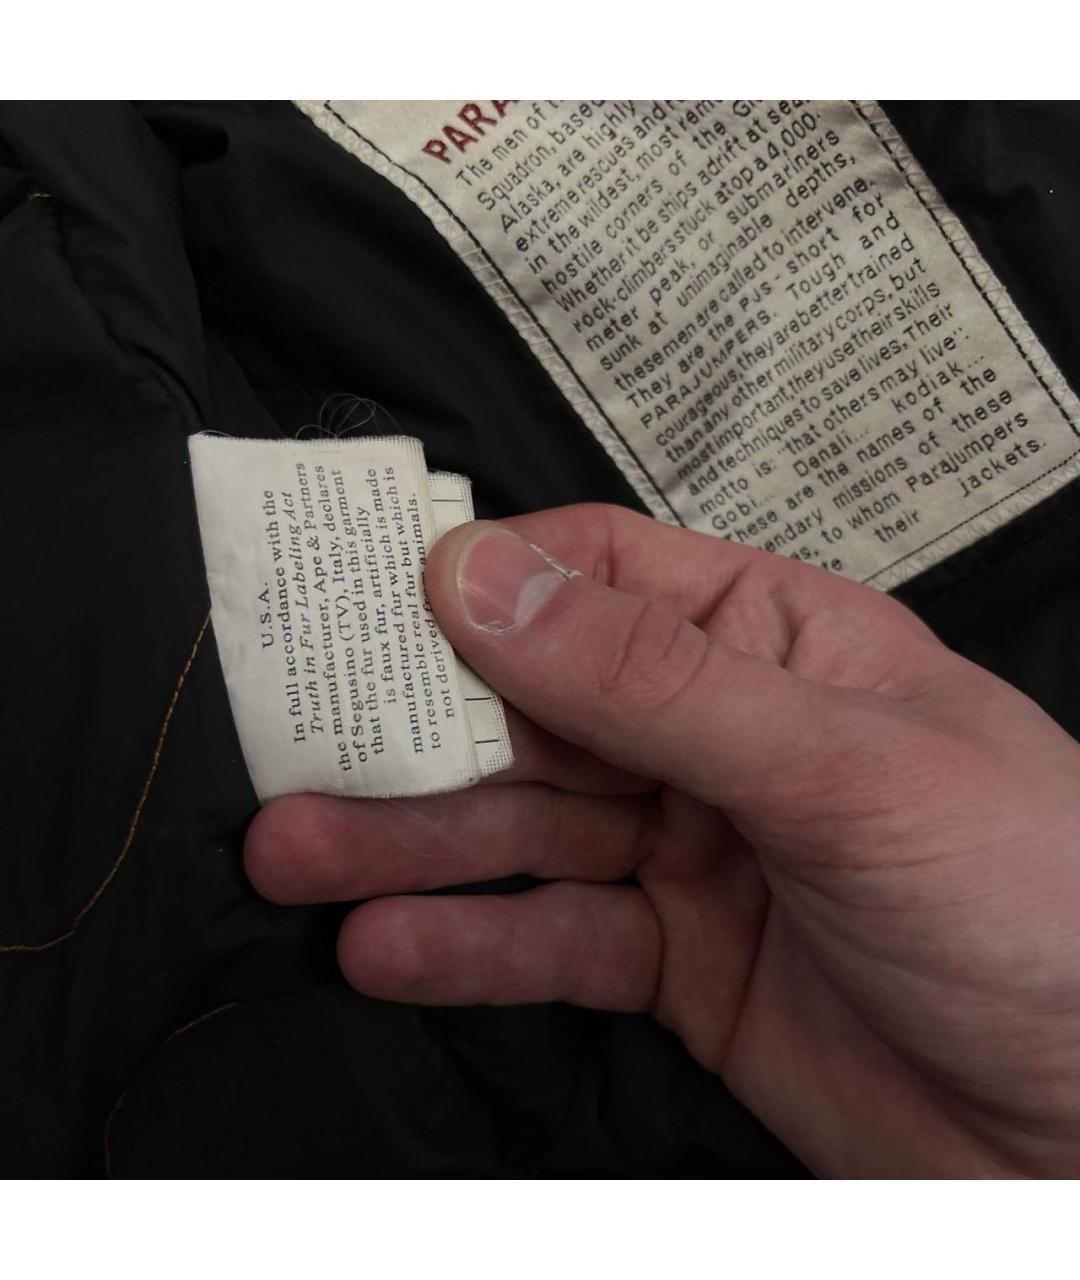 U.S.A.
In full accordance with the
Truth in Fur Labeling Act
the manufacturer, Ape & Partners
of Segusino (TV), Italy, declares
that the fur used in this garment
is faux fur, artificially
manufactured fur which is made
to resemble real fur but which is
not derived from animals.
PARA
The men of
Squadron, based
Alaska, are highly
extreme rescues and
in the wildest, most
hostile corners of the
Whether it be ships adrift at sea,
rock-climbers stuck atop a 4,000
meter peak, or submariners
sunk at unimaginable depths,
these men are called to intervene.
They are the PJS - short for
PARAJUMPERS. Tough and
courageous, they are better trained
than any other military corps, but
most important, they use their skills
and techniques to save lives, Their
motto is: "that others may live".
Gobi... Denali... kodiak...
These are the names of the
missions of these
to whom Parajumpers
their jackets.